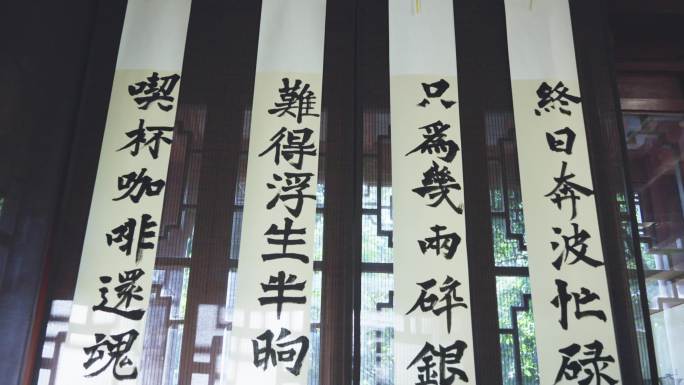 終日奔波忙碌
只為幾兩碎銀
難得浮生半晌
喫杯咖啡還魂